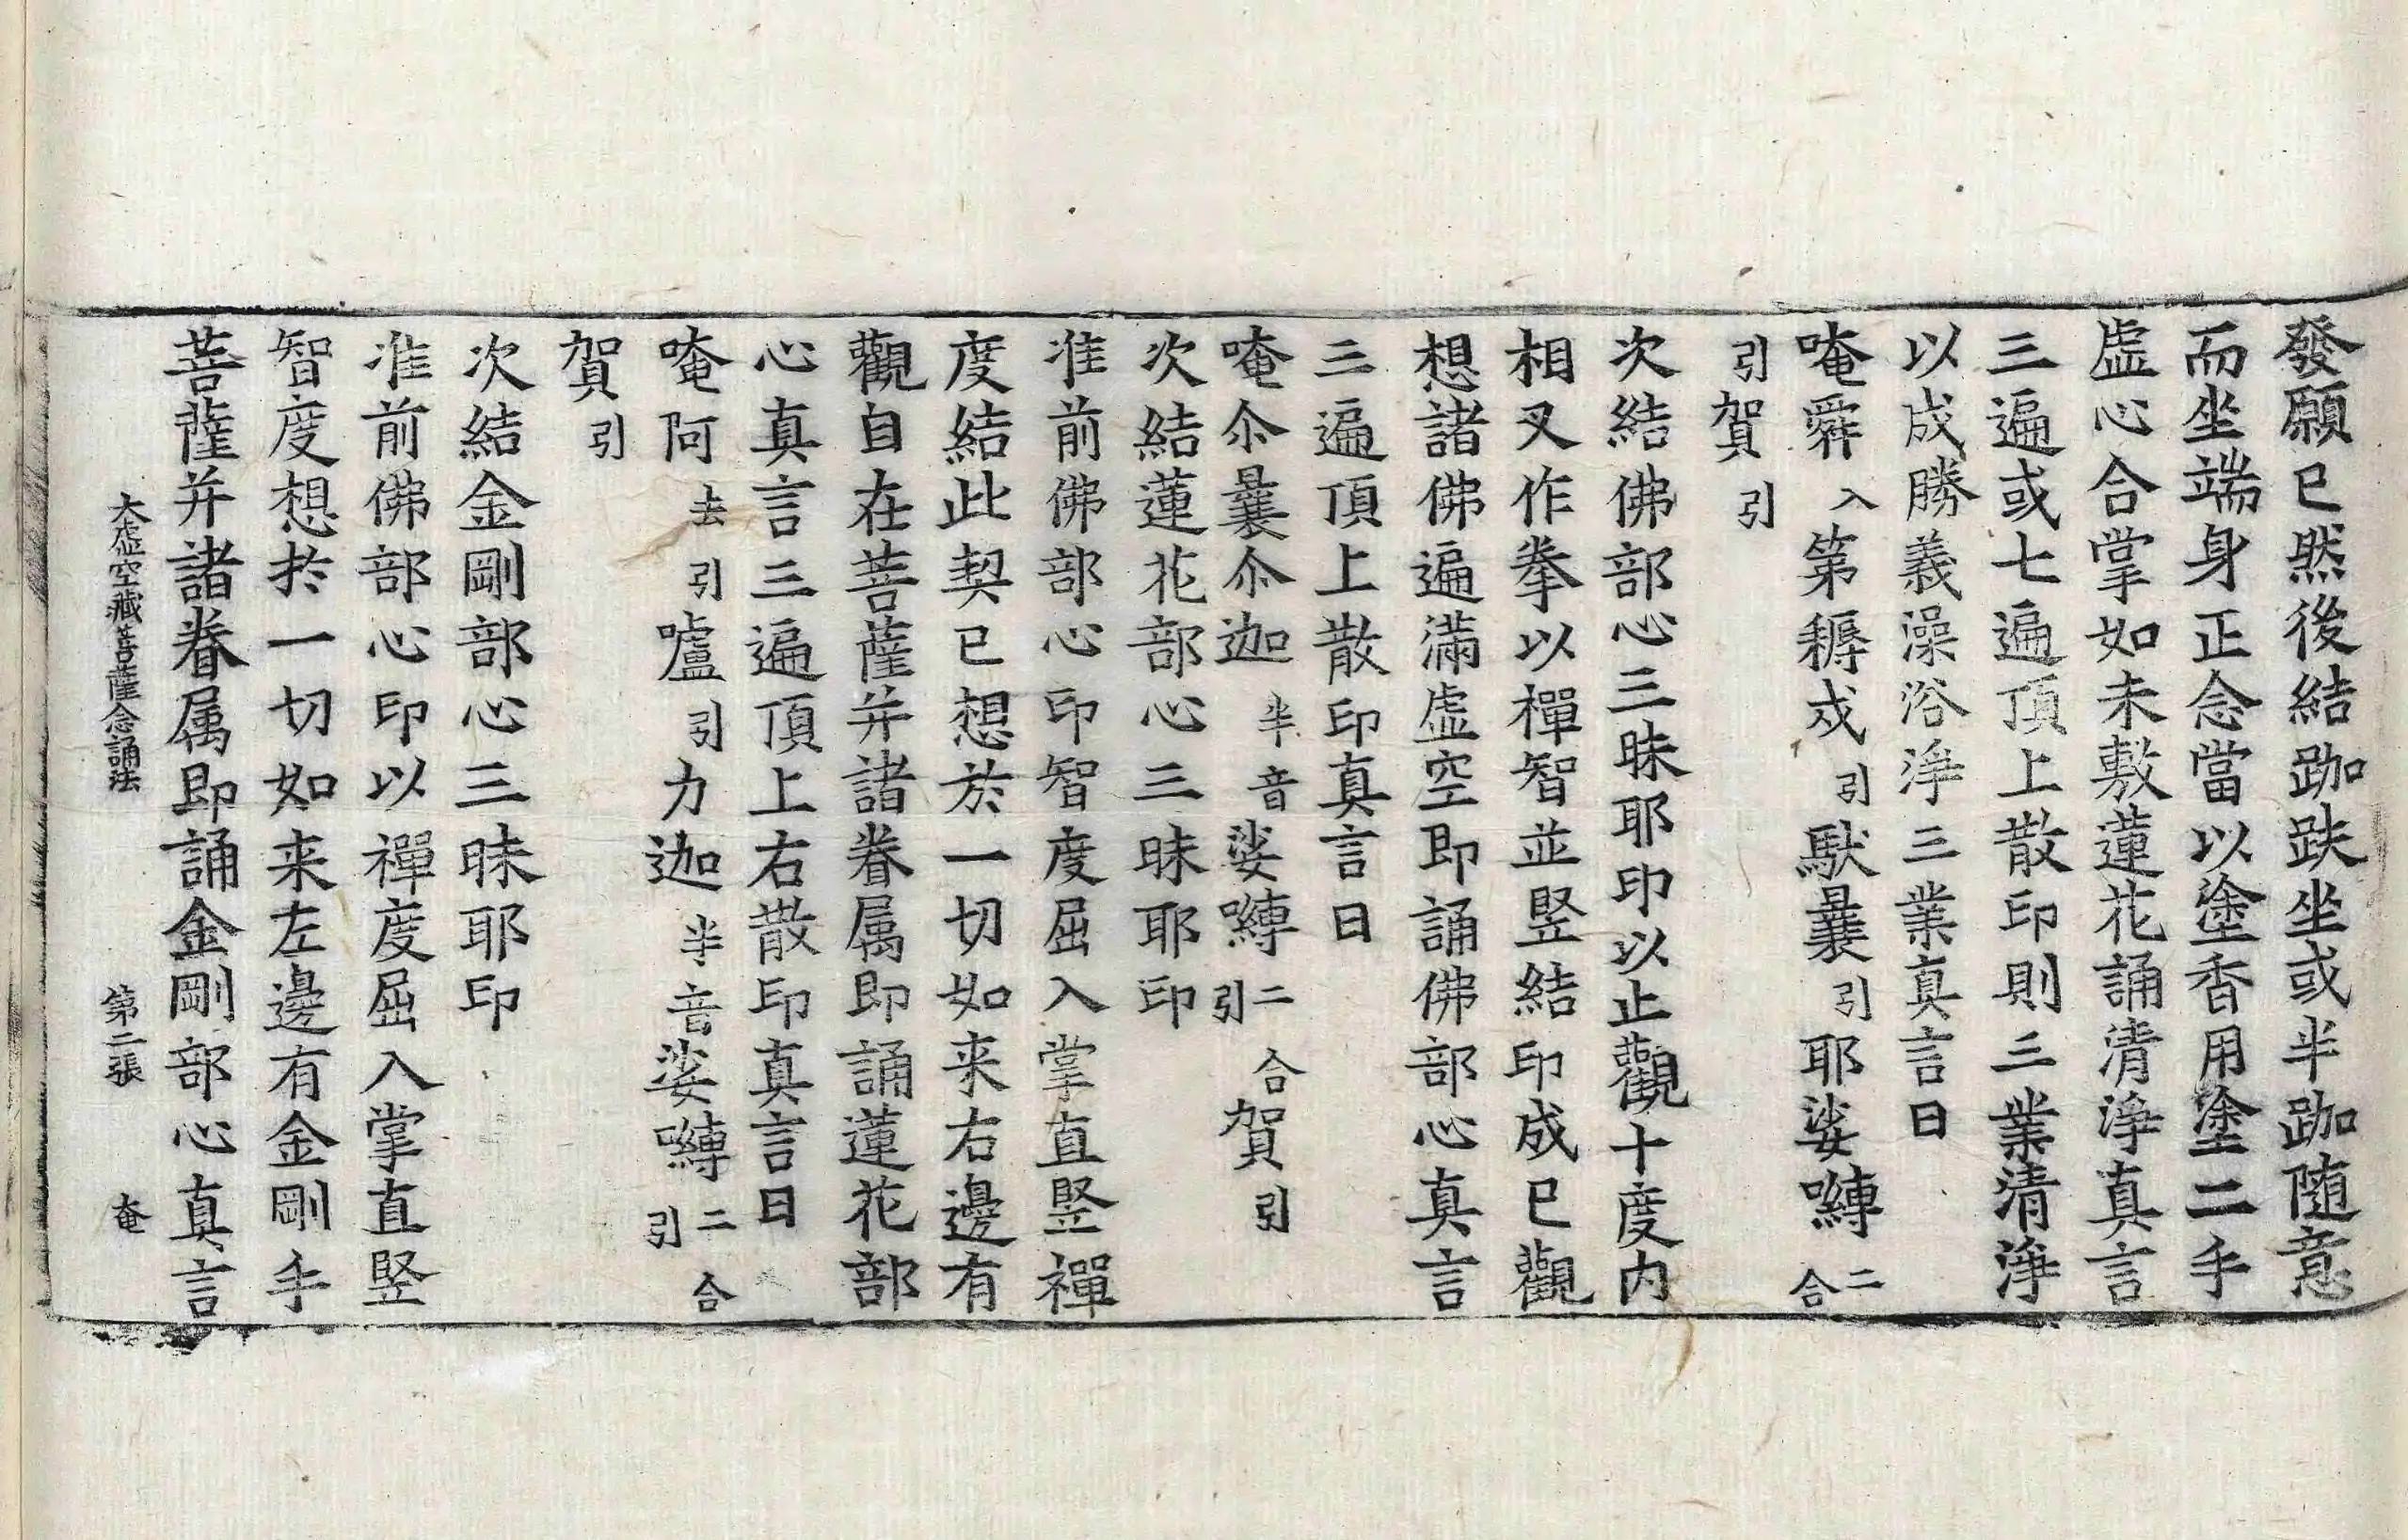 發願已然後結跏趺坐或半跏随意
而坐端身正念當以塗香用塗二手
虛心合掌如未敷蓮花誦清淨真言
三遍或七遍頂上散印則三業清淨
以成勝義澡浴淨三業真言曰
唵舜入第耨戍引馱曩引耶娑嚩二合
引賀引
次結佛部心三昧耶印以止觀十度內
相叉作拳以禪智並竪結印成已觀
想諸佛遍滿虛空即誦佛部心真言
三遍頂上散印真言曰
唵尒曩尒迦半音娑嚩二合引賀引
次結蓮花部心三昧耶印
准前佛部心印智度屈入掌直竪禪
度結此契已想於一切如来右邊有
觀自在菩薩并諸眷属即誦蓮花部
心真言三遍頂上右散印真言曰
唵阿去引嚧引力迦半音娑嚩二合引
賀引
次結金剛部心三昧耶印
准前佛部心印以禪度屈入掌直竪
智度想於一切如来左邊有金剛手
菩薩并諸眷属即誦金剛部心真言
大虛空藏菩薩念誦法 第二張 奄